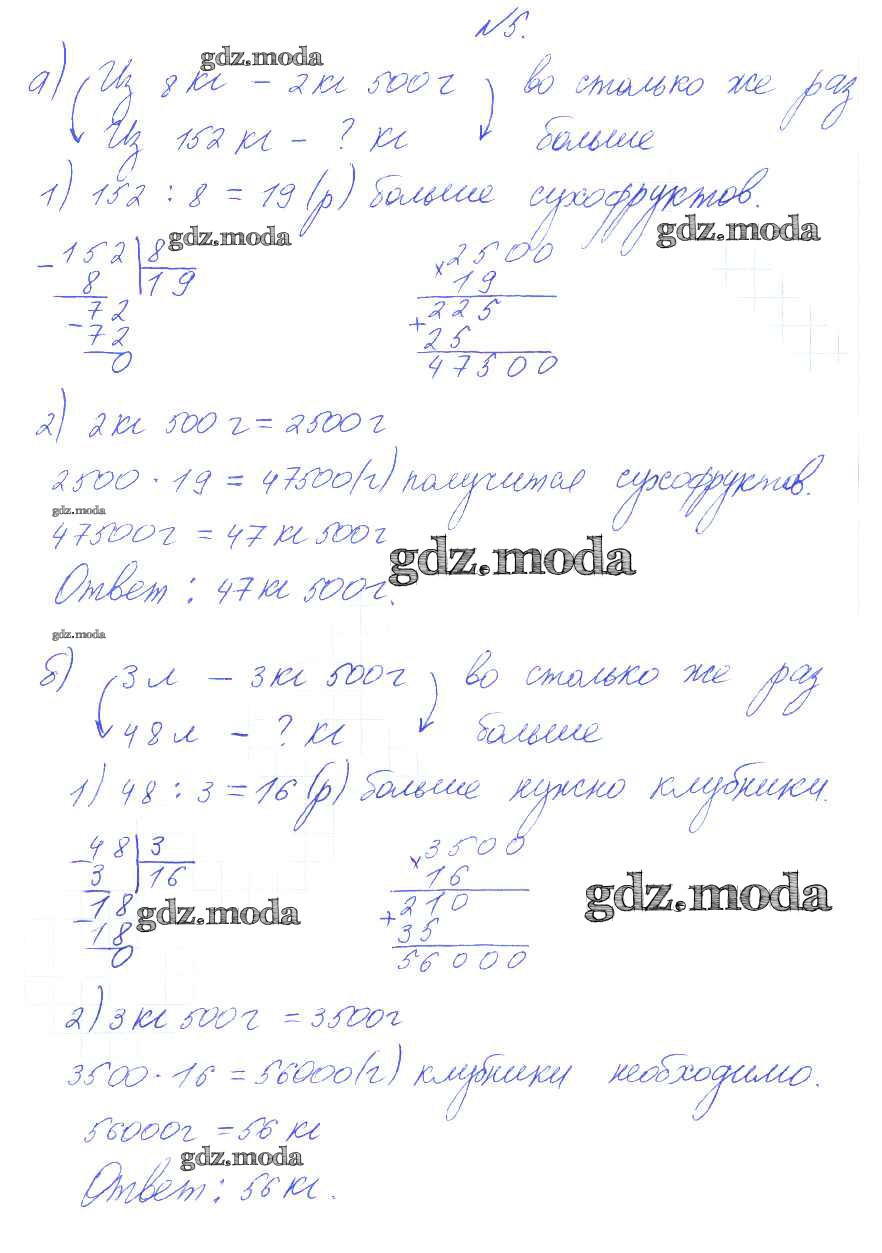 №5.
gdz.moda
а) Из 8 кг – 2 кг 500 г во столько же раз
Из 152 кг – ? кг больше
1) 152 : 8 = 19 (р) больше сухофруктов.
gdz.moda gdz.moda
- 152 | 8
8 | 19
- 72
72
0
× 2500
19
+ 225
25
47500
2) 2 кг 500 г = 2500 г
2500 · 19 = 47500 (г) получится сухофруктов.
gdz.moda
47500 г = 47 кг 500 г
gdz.moda
Ответ: 47 кг 500 г.
gdz.moda
б) 3 л – 3 кг 500 г во столько же раз
48 л – ? кг больше
1) 48 : 3 = 16 (р) больше нужно клубники.
- 48 | 3
3 | 16
- 18
18
0
gdz.moda
× 3500
16
+ 210
35
56000
gdz.moda
2) 3 кг 500 г = 3500 г
3500 · 16 = 56000 (г) клубники необходимо.
56000 г = 56 кг
gdz.moda
Ответ: 56 кг.